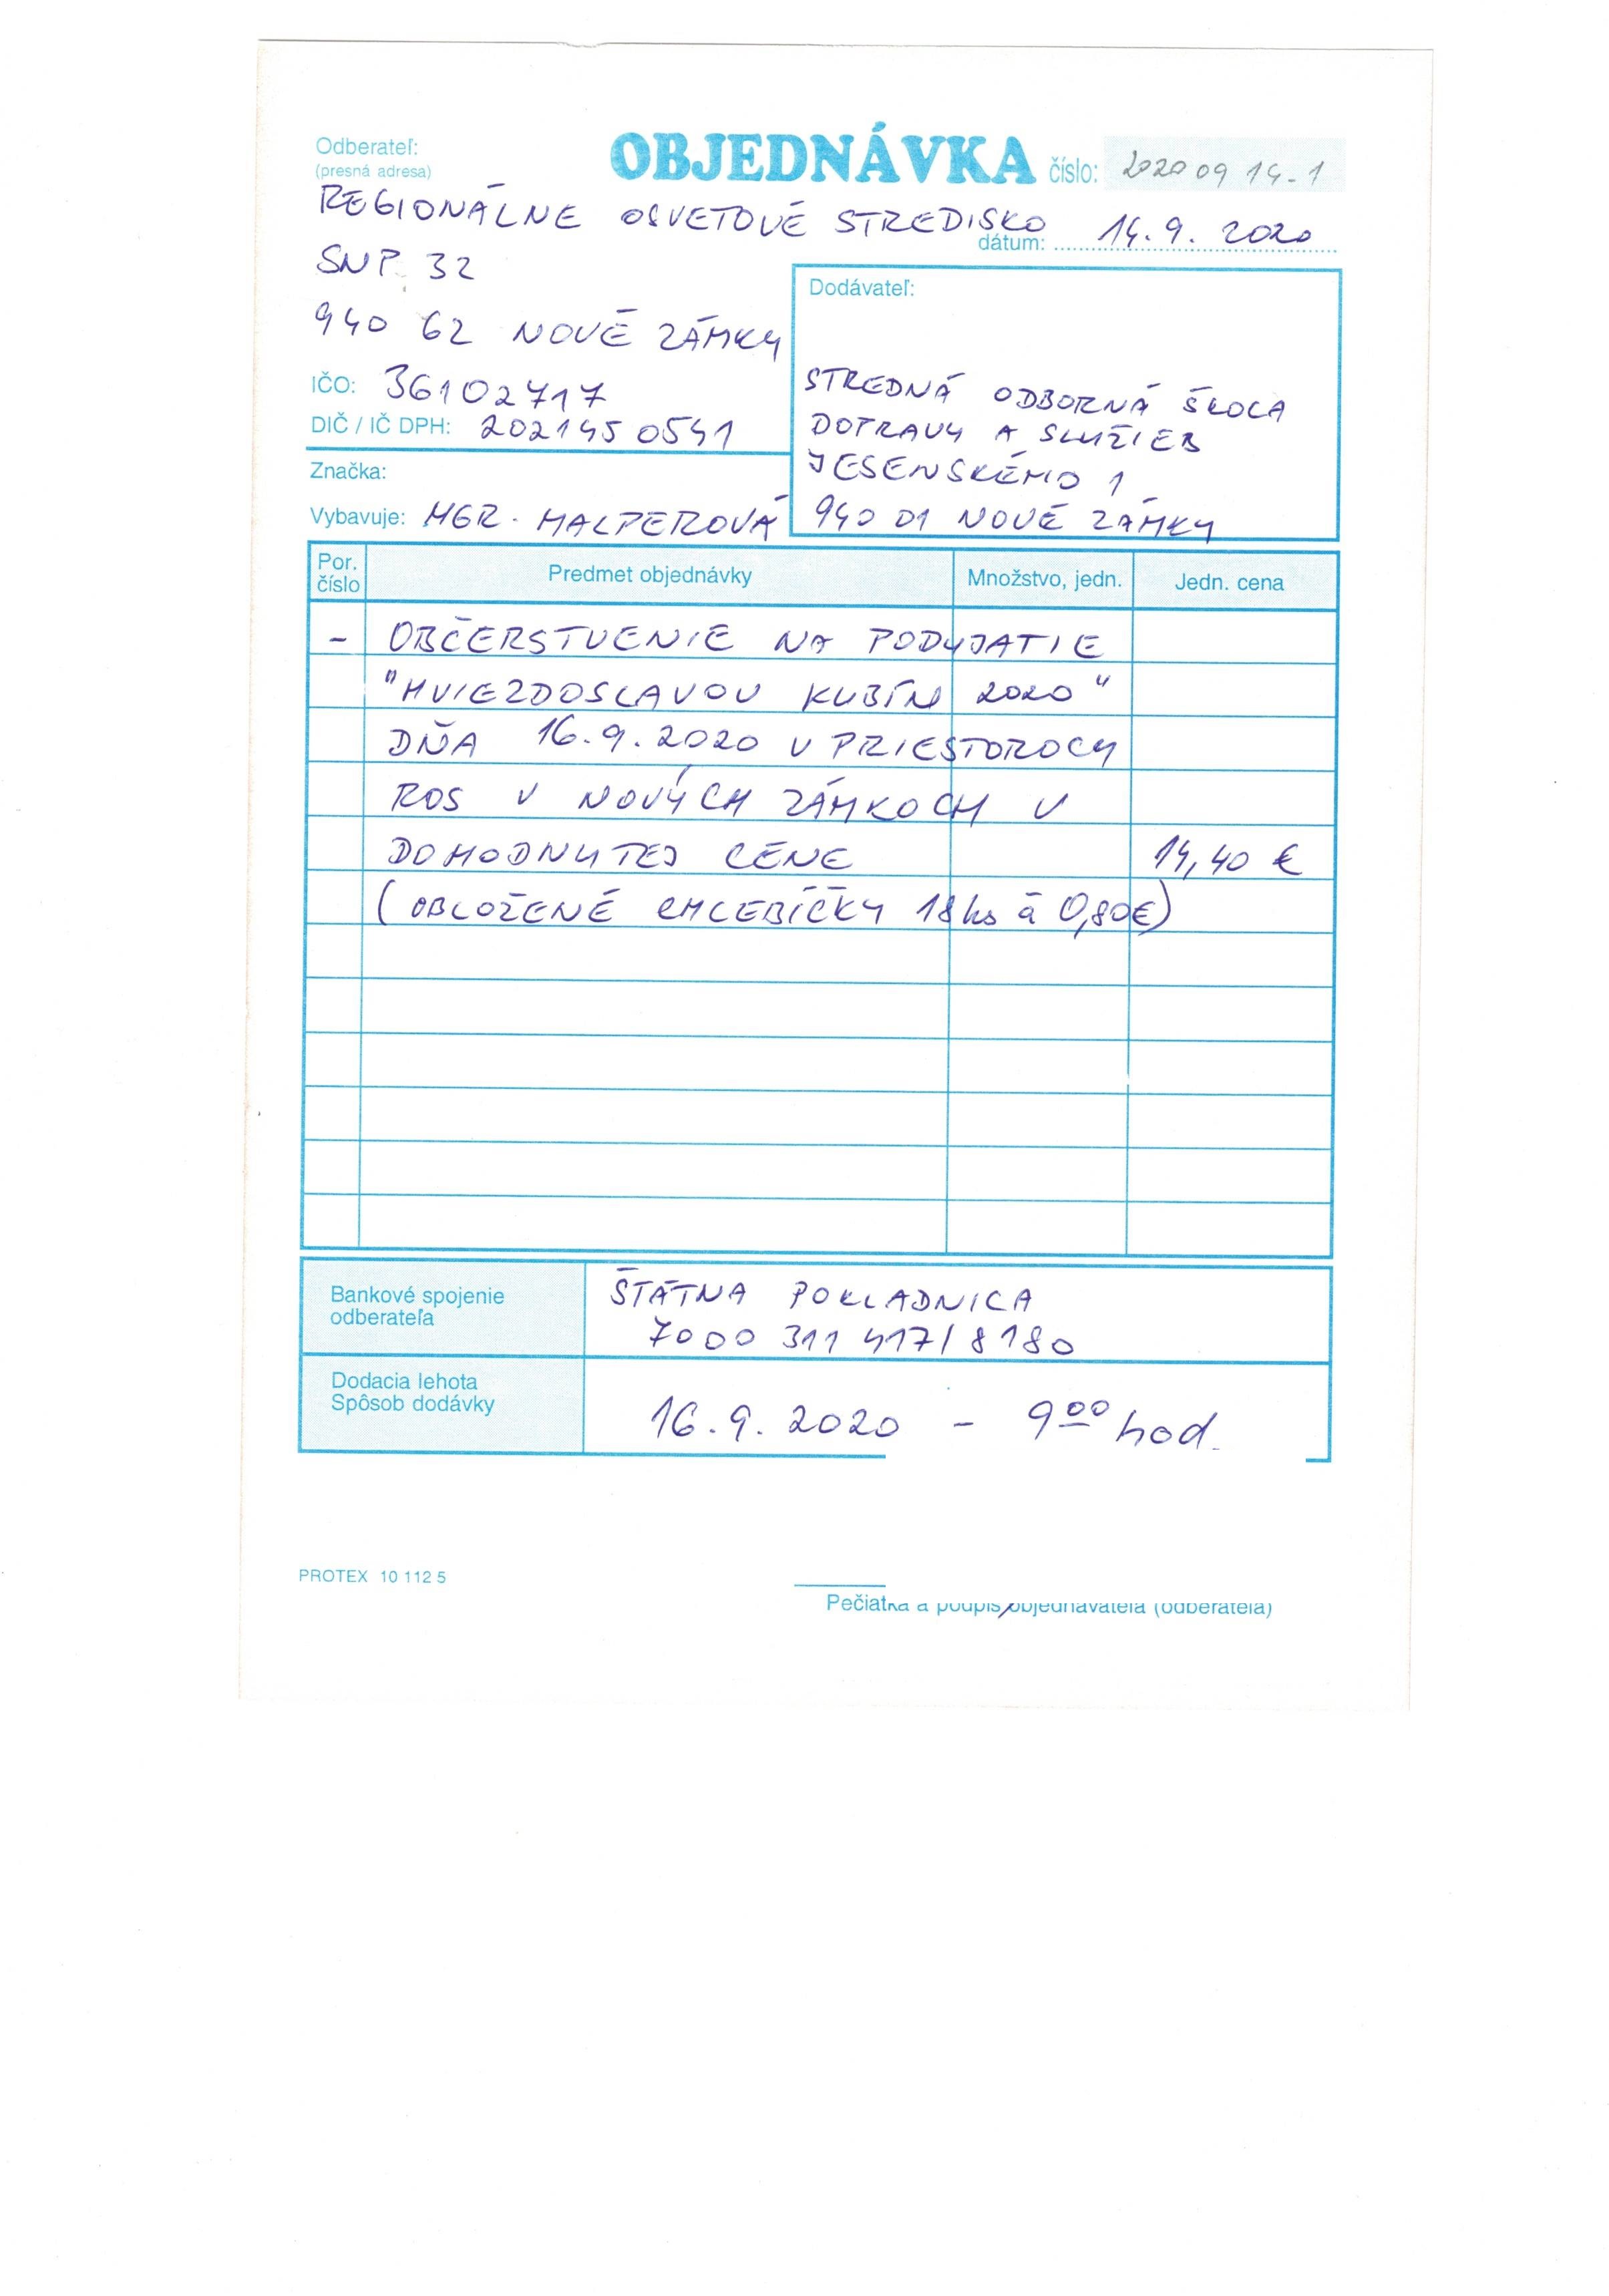 Odberateľ:
(presná adresa)
OBJEDNÁVKA číslo: 20200914-1
REGIONÁLNE OSVETOVÉ STREDISKO
dátum: 14.9.2020
SNP 32
940 62 NOVÉ ZÁMKY
IČO: 36102717
DIČ / IČ DPH: 2021450541
Značka:
Vybavuje: MGR. MALPEROVÁ
Dodávateľ:
STREDNÁ ODBORNÁ ŠKOLA
DOPRAVY A SLUŽIEB
JESENSKÉHO 1
940 01 NOVÉ ZÁMKY
Por. číslo Predmet objednávky Množstvo, jedn. Jedn. cena
- OBČERSTVENIE NA PODUJATIE
"HVIEZDOSLAVOV KUBÍN 2020"
DŇA 16.9.2020 V PRIESTOROCH
ROS V NOVÝCH ZÁMKOCH V
DOHODNUTEJ CENE 14,40 €
(OBLOŽENÉ CHLEBÍČKY 18ks á 0,80€)
Bankové spojenie
odberateľa
ŠTÁTNA POKLADNICA
7000 311 417/8180
Dodacia lehota
Spôsob dodávky
16.9.2020 - 9⁰⁰ hod.
PROTEX 10 112 5
Pečiatka a podpis objednávateľa (odberateľa)